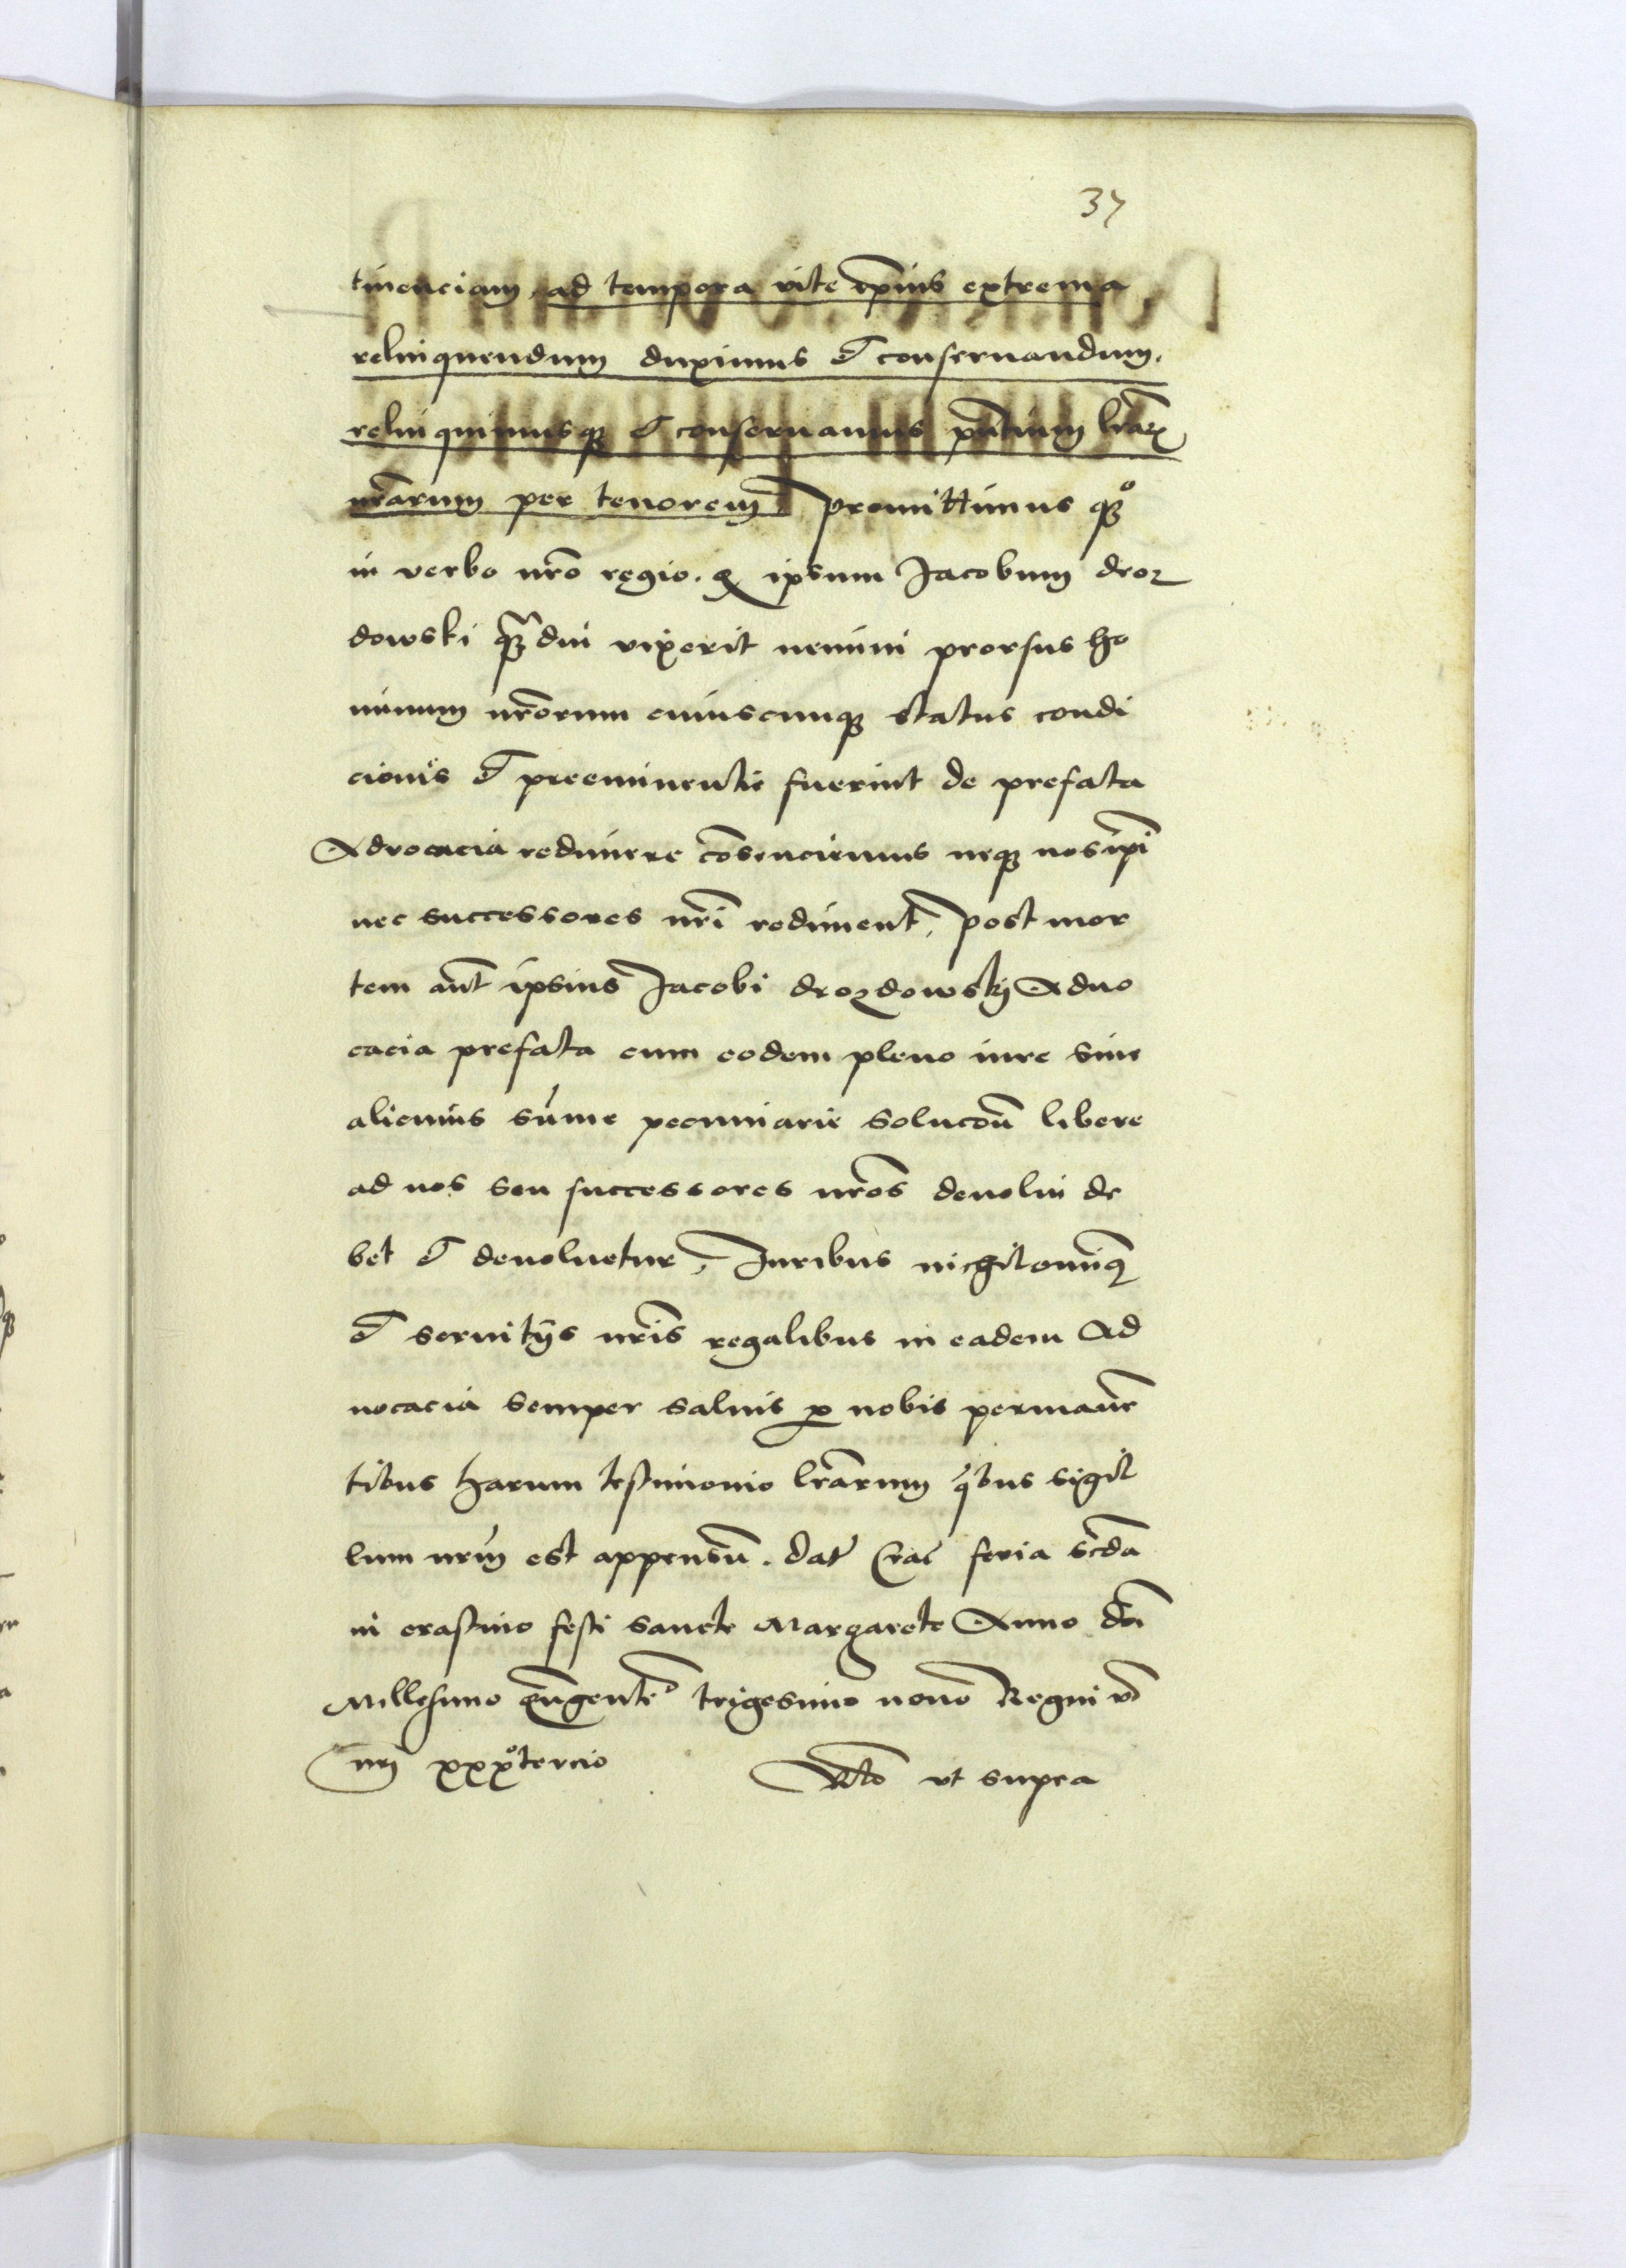 37
tinenciam, ad tempora vite ip̄ius extrema
relinquendum duximus et conseruandum.
relinquimusq3 et conseruamus pn̄tium lr̄aꝝ
nr̄arum per tenorem Promittimus qꝫº
in verbo nr̄o regio. ꝙ ipsum Jacobum droz
dowski qꝫ̄diu vixerit nemini prorsus ho
minum nr̄orum cuiuscunqꝫ status condi
cionis et preeminentie fuerint de prefata
Advocacia redimere cōsenciemus neqꝫ nos ip̄i
nec successores nr̄i rediment, Post mor
tem aūt ipsius Jacobi drozdowskij Aduo
cacia prefata cum eodem pleno iure sine
alicuius sūme pecuniarie solucōn̄ libere
ad nos seu successores nr̄os deuolui de
bet et deuoluetur, Juribus nichilominꝰ
et seruitijs nr̄is regalibus in eadem Ad
uocacia semper saluis ꝓ nobis permanen̄
tibus harum testimonio lr̄arum qͥbus sigil
lum nr̄m est appensū. dat̄ Crac̄ feria scd̄a
in crastino festi sancte Margarete Anno dn̄i
Millesimo qͥngentē° trigesimo nono Regni v°
nr̄i xxxº tercio
Rl̄o vt supra